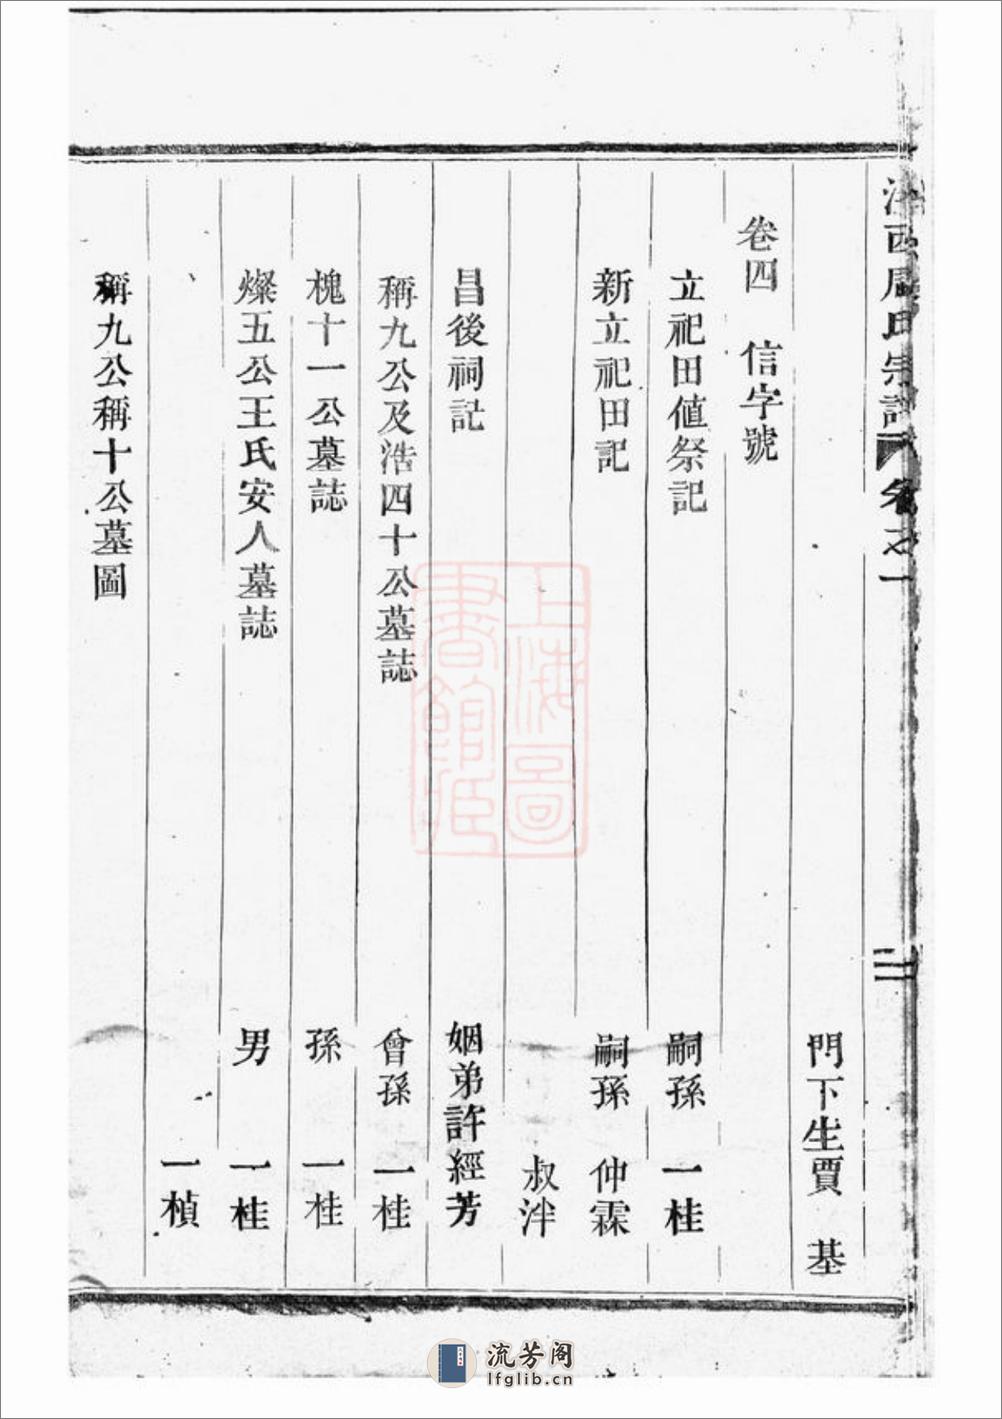 西周氏宗譜 卷之一 二
門下生賈 基
卷四 信字號
立祀田值祭記 嗣孫 一桂
新立祀田記 嗣孫 仲霖
叔泮
昌後祠記 姻弟許經芳
稱九公及浩四十公墓誌 曾孫 一桂
槐十一公墓誌 孫 一桂
燦五公王氏安人墓誌 男 一桂
一楨
稱九公稱十公墓圖
上海圖
書館藏
流芳阁
lfglib.cn